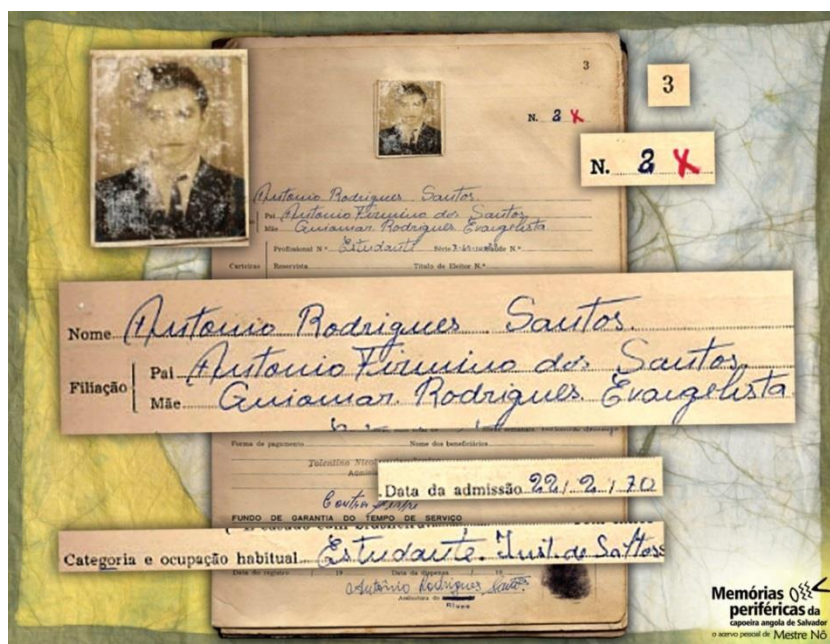 3
3
N. 2 X
N. 2 X
Antonio Rodrigues Santos
Pai Antonio Firmino dos Santos
Mãe Guiomar Rodrigues Evangelista
Profissional N.º Estudante Série
Carteiras Reservista Título de Eleitor N.º
Nome Antonio Rodrigues Santos
Filiação Pai Antonio Firmino dos Santos
Mãe Guiomar Rodrigues Evangelista
Forma de pagamento Nome dos beneficiários
Data da admissão 22/2/70
Contra Mestre
FUNDO DE GARANTIA DO TEMPO DE SERVIÇO
Categoria e ocupação habitual Estudante. Inst. de
Data do registro Data da dispensa
Antônio Rodrigues Santos
Assinatura do
aluno
Memórias
periféricas da
capoeira angola de Salvador
o acervo pessoal de Mestre Nô